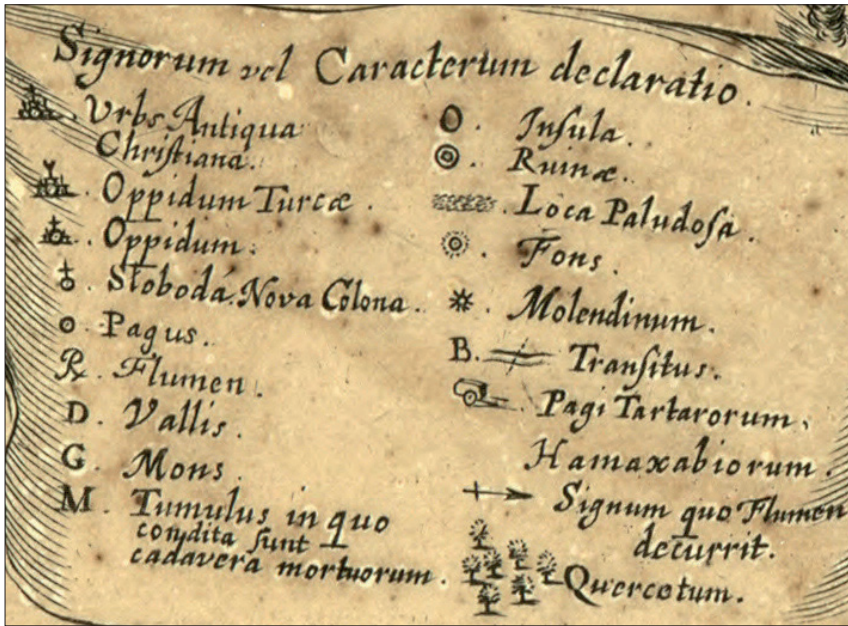 Signorum vel Caracterum declaratio.
Vrbs Antiqua
Christiana.
Oppidum Turcæ.
Oppidum.
Słobodá. Nova Colona.
Pagus.
R. Flumen.
D. Vallis.
G. Mons.
M. Tumulus in quo
condita sunt
cadavera mortuorum.
O. Insula.
Ruinæ.
Loca Paludosa.
Fons.
Molendinum.
B. Transitus.
Pagi Tartarorum,
Hamaxabiorum.
Signum quo Flumen
decurrit.
Quercetum.